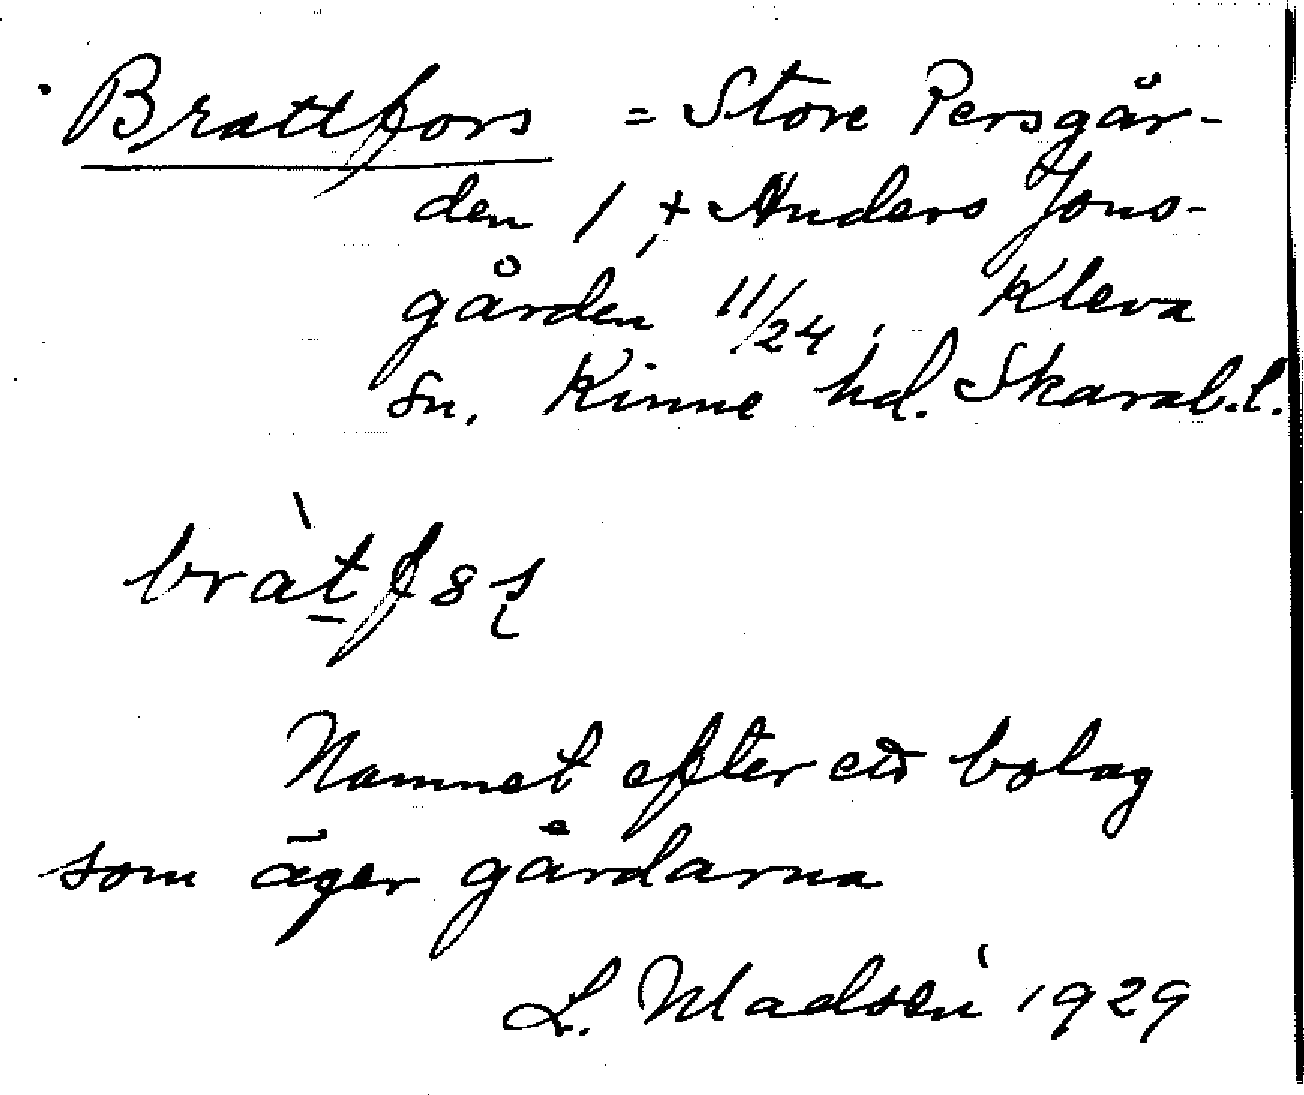 Brattfors = Store Persgår-
den 1, + Anders Jons-
gården 11/24, Kleva
sn. Kinne hd. Skarab.l.
Namnet efter ett bolag
som äger gårdarna
L. Madsén 1929